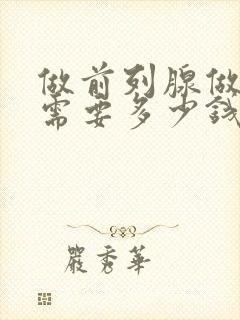 做前列腺做
需要多少钱
嚴秀華